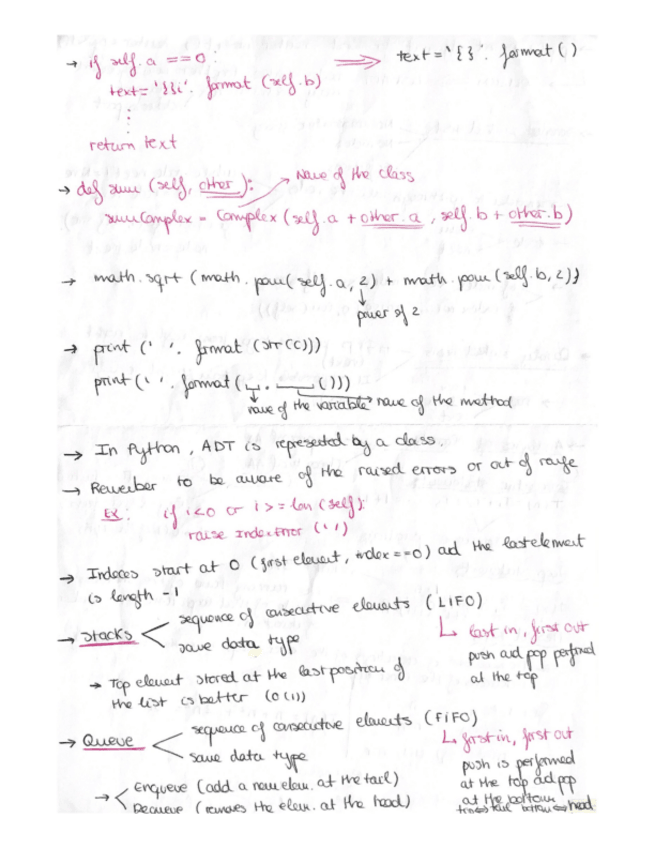 → if self.a == 0:
text = '{}i'. format (self.b)
⋮
return text
⟹ text = '{}'. format ()
→ def sum (self, other):
→ Name of the class
sumComplex = Complex (self.a + other.a, self.b + other.b)
→ math.sqrt (math.pow(self.a, 2) + math.pow (self.b, 2))
↓
power of 2
→ print (' '. format (str(c)))
print (' '. format (__.____()))
name of the variable name of the method
→ In Python, ADT is represented by a class.
→ Remember to be aware of the raised errors or out of range
Ex: if i<0 or i >= len (self):
raise IndexError (' ')
→ Indexes start at 0 (first element, index==0) and the last element
is length -1
→ Stacks < sequence of consecutive elements (LIFO)
same data type
↳ last in, first out
push and pop performed
at the top
→ Top element stored at the last position of
the list is better (O(1))
→ Queue < sequence of consecutive elements (FIFO)
same data type
↳ first in, first out
push is performed
at the top and pop
at the bottom
top⇔tail bottom⇔head
→ < Enqueue (add a new elem. at the tail)
Dequeue (removes the elem. at the head)